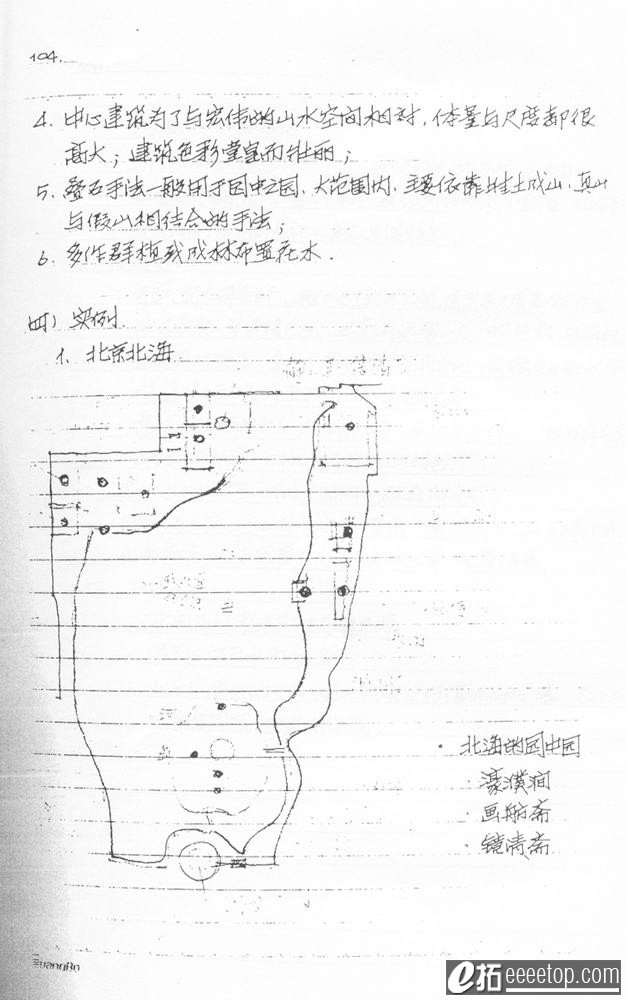 104.
4. 中心建筑为了与宏伟的山水空间相衬，体量与尺度都很
高大；建筑色彩堂皇而壮丽；
5. 叠石手法一般用于园中之园、大范围内，主要依靠堆土成山、真山
与假山相结合的手法；
6. 多作群植或成林布置花木．
四）实例
1、北京北海
· 北海的园中园
· 濠濮涧
· 画舫斋
· 镜清斋
e拓 eeeetop.com